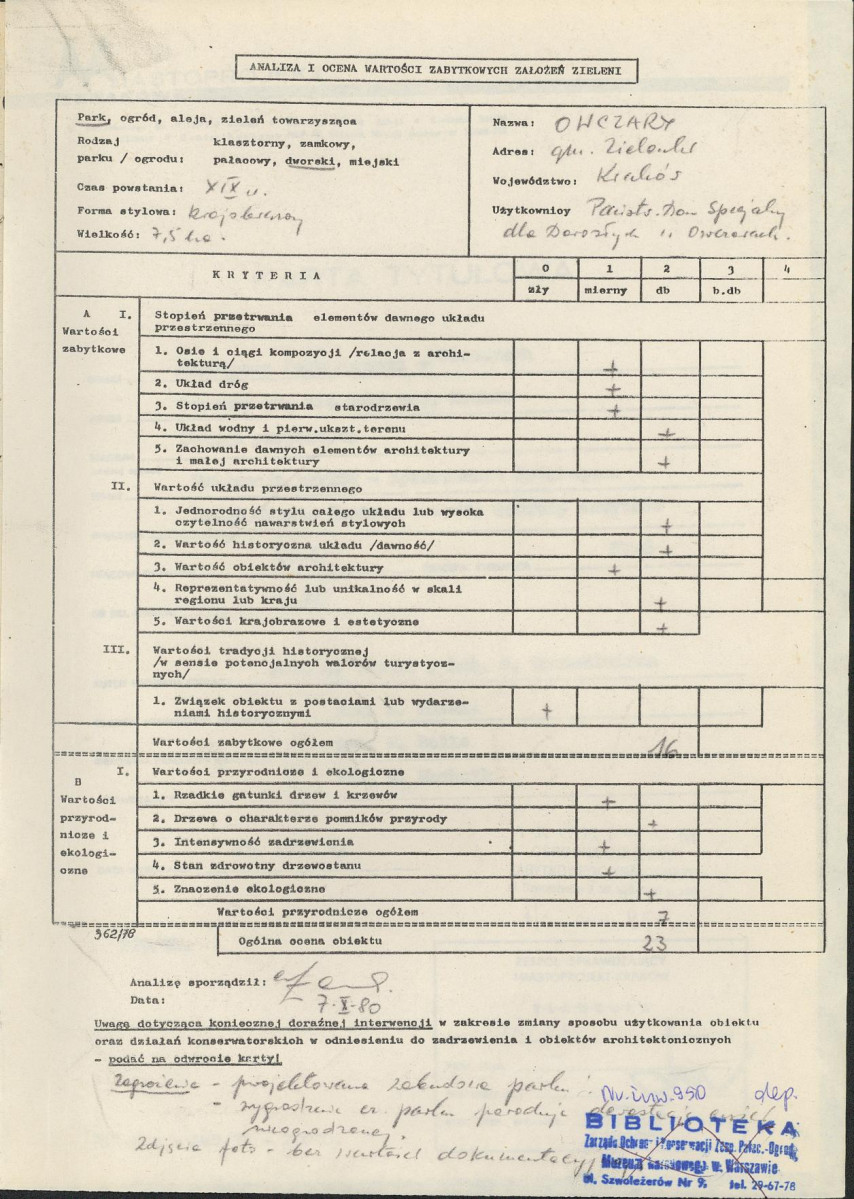 ANALIZA I OCENA WARTOŚCI ZABYTKOWYCH ZAŁOŻEŃ ZIELENI
Park, ogród, aleja, zieleń towarzysząca
Rodzaj klasztorny, zamkowy,
parku / ogrodu: pałacowy, dworski, miejski
Czas powstania: XIX w.
Forma stylowa: krajobrazowy
Wielkość: 7,5 ha.
Nazwa: OWCZARY
Adres: gm. Zielonki
Województwo: Kraków
Użytkownicy Państw. Dom Specjalny
dla Dorosłych w Owczarach.
KRYTERIA 0 1 2 3 4
zły mierny db b.db
A I. Stopień przetrwania elementów dawnego układu
Wartości przestrzennego
zabytkowe
1. Osie i ciągi kompozycji /relacja z archi-
tekturą/ +
2. Układ dróg +
3. Stopień przetrwania starodrzewia +
4. Układ wodny i pierw.ukszt.terenu +
5. Zachowanie dawnych elementów architektury
i małej architektury +
II. Wartość układu przestrzennego
1. Jednorodność stylu całego układu lub wysoka
czytelność nawarstwień stylowych +
2. Wartość historyczna układu /dawność/ +
3. Wartość obiektów architektury +
4. Reprezentatywność lub unikalność w skali
regionu lub kraju +
5. Wartości krajobrazowe i estetyczne +
III. Wartości tradycji historycznej
/w sensie potencjalnych walorów turystycz-
nych/
1. Związek obiektu z postaciami lub wydarze-
niami historycznymi +
Wartości zabytkowe ogółem 16
B I. Wartości przyrodnicze i ekologiczne
Wartości
przyrod-
nicze i
ekologi-
czne
1. Rzadkie gatunki drzew i krzewów +
2. Drzewa o charakterze pomników przyrody +
3. Intensywność zadrzewienia +
4. Stan zdrowotny drzewostanu +
5. Znaczenie ekologiczne +
Wartości przyrodnicze ogółem 7
362/78
Ogólna ocena obiektu 23
Analizę sporządził:
Data: 7-X-80
Uwagę dotycząca koniecznej doraźnej interwencji w zakresie zmiany sposobu użytkowania obiektu
oraz działań konserwatorskich w odniesieniu do zadrzewienia i obiektów architektonicznych
- podać na odwrocie karty!
Zagrożenia - projektowana zabudowa parku.
- wygrodzenie cz. parku powoduje dewastację części
nieogrodzonej.
Zdjęcia foto - bez wartości dokumentacyj
Nr. inw. 950 dep.
BIBLIOTEKA
Zarządu Ochrony i Konserwacji Zesp. Pałac.-Ogrod.
Muzeum Narodowego w Warszawie
ul. Szwoleżerów Nr 9, tel. 29-67-78